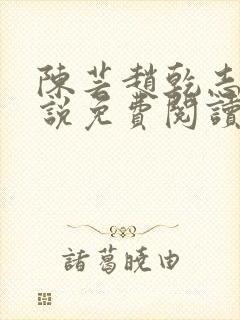 陳芸趙乾志
說免費閱讀
諸葛曉由